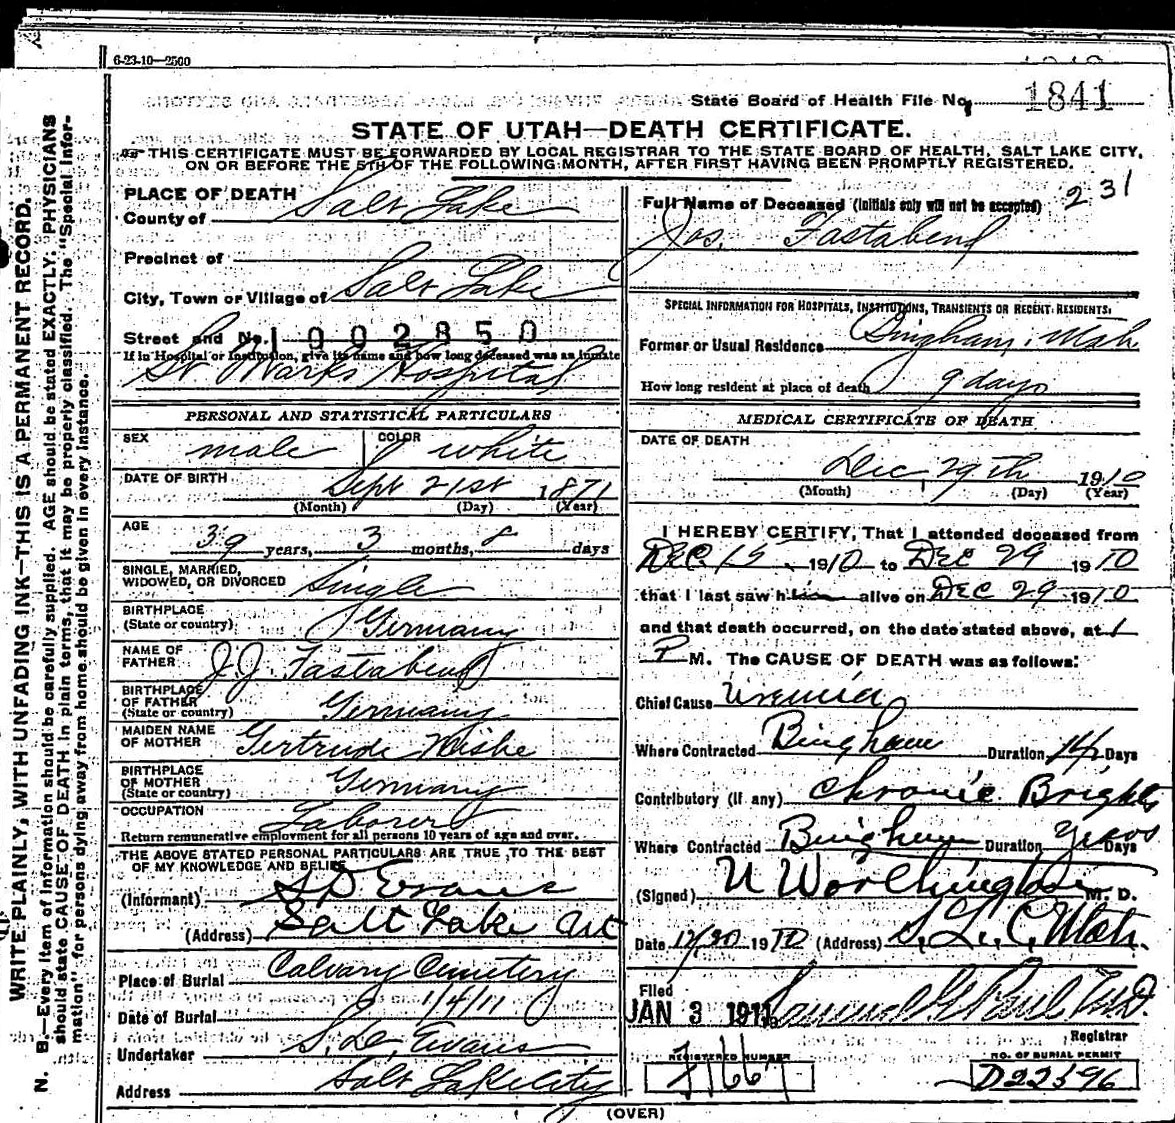 6-23-10—2500
State Board of Health File No. 1841
STATE OF UTAH—DEATH CERTIFICATE.
THIS CERTIFICATE MUST BE FORWARDED BY LOCAL REGISTRAR TO THE STATE BOARD OF HEALTH, SALT LAKE CITY,
ON OR BEFORE THE 5TH OF THE FOLLOWING MONTH, AFTER FIRST HAVING BEEN PROMPTLY REGISTERED.
WRITE PLAINLY, WITH UNFADING INK—THIS IS A PERMANENT RECORD.
N. B.—Every item of information should be carefully supplied. AGE should be stated EXACTLY. PHYSICIANS
should state CAUSE OF DEATH in plain terms, that it may be properly classified. The "Special Infor-
mation" for persons dying away from home should be given in every instance.
PLACE OF DEATH
County of Salt Lake
Precinct of
City, Town or Village of Salt Lake
Street and No. 1002850
If in Hospital or Institution, give its name and how long deceased was an inmate
St Marks Hospital
PERSONAL AND STATISTICAL PARTICULARS
SEX male COLOR white
DATE OF BIRTH Sept 21st 1871
(Month) (Day) (Year)
AGE 39 years, 3 months, 8 days
SINGLE, MARRIED,
WIDOWED, OR DIVORCED Single
BIRTHPLACE
(State or country) Germany
NAME OF
FATHER J. J. Fastabend
BIRTHPLACE
OF FATHER
(State or country) Germany
MAIDEN NAME
OF MOTHER Gertrude
BIRTHPLACE
OF MOTHER
(State or country) Germany
OCCUPATION Laborer
Return remunerative employment for all persons 10 years of age and over.
THE ABOVE STATED PERSONAL PARTICULARS ARE TRUE TO THE BEST
OF MY KNOWLEDGE AND BELIEF
(Informant) S D Evans
(Address) Salt Lake Ut
Place of Burial Calvary Cemetery
Date of Burial 1/4/11
Undertaker S. D. Evans
Address Salt Lake City
231
Full Name of Deceased (Initials only will not be accepted)
Jos. Fastabend
SPECIAL INFORMATION FOR HOSPITALS, INSTITUTIONS, TRANSIENTS OR RECENT RESIDENTS.
Former or Usual Residence Bingham, Utah
How long resident at place of death 9 days
MEDICAL CERTIFICATE OF DEATH
DATE OF DEATH
Dec, 29th 1910
(Month) (Day) (Year)
I HEREBY CERTIFY, That I attended deceased from
DEC 15 1910 to DEC 29 1910
that I last saw him alive on DEC 29 1910
and that death occurred, on the date stated above, at 1
P M. The CAUSE OF DEATH was as follows:
Chief Cause Uremia
Where Contracted Bingham Duration 14 Days
Contributory (if any) Chronic Brights
Where Contracted Bingham Duration years Days
(Signed) U Worthington M. D.
Date 12/30 1910 (Address) S. L. C. Utah.
Filed
JAN 3 1911 Samuel G Paul M.D.
Registrar
REGISTERED NUMBER
NO. OF BURIAL PERMIT
D22396
(OVER)